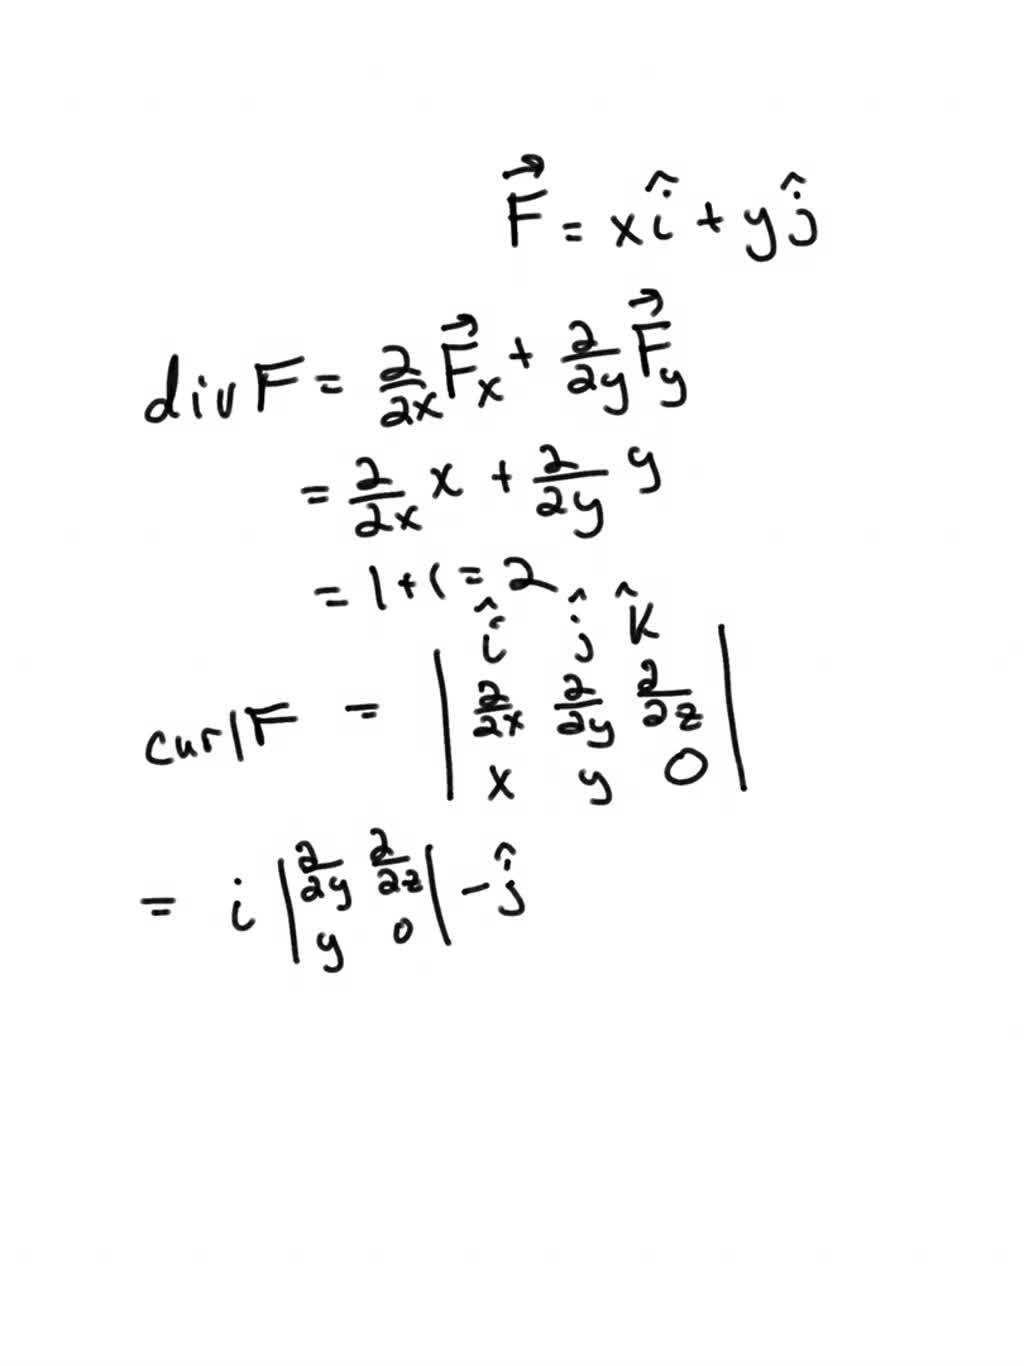 F⃗ = xî + yĵ
div F = ∂/∂x F⃗x + ∂/∂y F⃗y
= ∂/∂x x + ∂/∂y y
= 1 + 1 = 2
curl F = | î ĵ k̂ |
| ∂/∂x ∂/∂y ∂/∂z |
| x y 0 |
= i | ∂/∂y ∂/∂z | - ĵ
| y 0 |